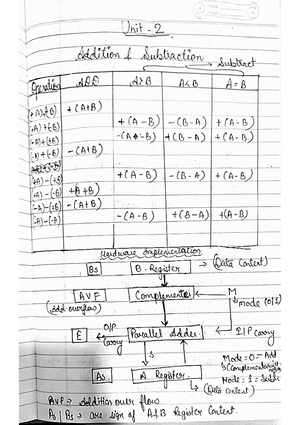 Unit - 2
Addition & Subtraction
Subtract
Operation ADD A>B A<B A=B
(+A)+(+B) +(A+B)
(+A)+(-B) +(A-B) -(B-A) +(A-B)
(-A)+(+B) -(A-B) +(B-A) +(A-B)
(-A)+(-B) -(A+B)
(+A)-(+B) +(A-B) -(B-A) +(A-B)
(+A)-(-B) +(A+B)
(-A)-(+B) -(A+B)
(-A)-(-B) -(A-B) +(B-A) +(A-B)
Hardware Implementation
Bs B-Register → (Data Content)
AVF Complementer M
(Add-overflow) mode (0/1)
E O/P carry Parallel adder I/P carry
S
Mode = 0 - Add
As A Register Mode = 1 =
(Data content)
AVF → Addition over flow
As/Bs → are sign of A&B Register Content.